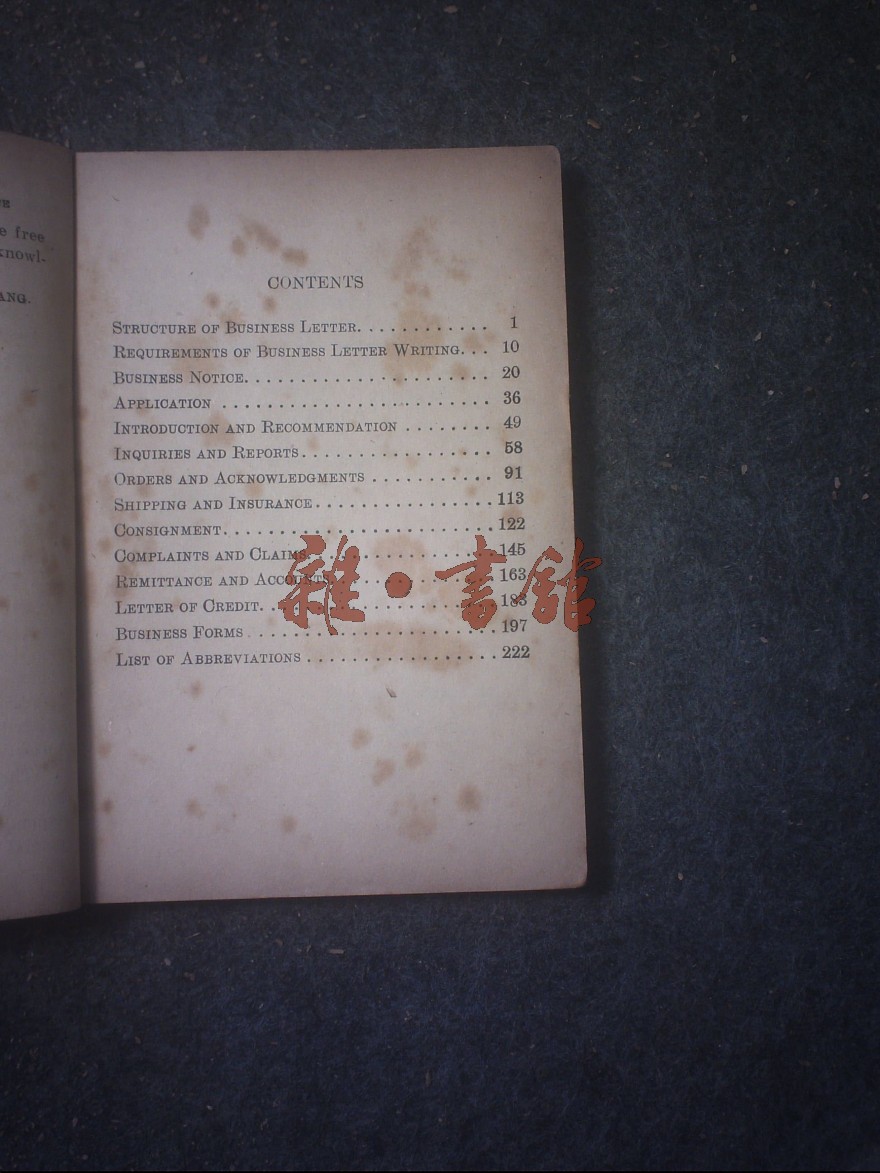 e free
knowl-
ANG.
CONTENTS
STRUCTURE OF BUSINESS LETTER. . . . . . . . . . . . 1
REQUIREMENTS OF BUSINESS LETTER WRITING. . . 10
BUSINESS NOTICE. . . . . . . . . . . . . . . . . . . . . . 20
APPLICATION . . . . . . . . . . . . . . . . . . . . . . . . 36
INTRODUCTION AND RECOMMENDATION . . . . . . . . 49
INQUIRIES AND REPORTS. . . . . . . . . . . . . . . . . 58
ORDERS AND ACKNOWLEDGMENTS . . . . . . . . . . . 91
SHIPPING AND INSURANCE. . . . . . . . . . . . . . . . 113
CONSIGNMENT. . . . . . . . . . . . . . . . . . . . . . . . 122
COMPLAINTS AND CLAIMS. . . . . . . . . . . . . . . . . 145
REMITTANCE AND ACCOUNTS. . . . . . . . . . . . . . . 163
LETTER OF CREDIT. . . . . . . . . . . . . . . . . . . . . 183
BUSINESS FORMS . . . . . . . . . . . . . . . . . . . . . . 197
LIST OF ABBREVIATIONS . . . . . . . . . . . . . . . . . 222
雜·書館